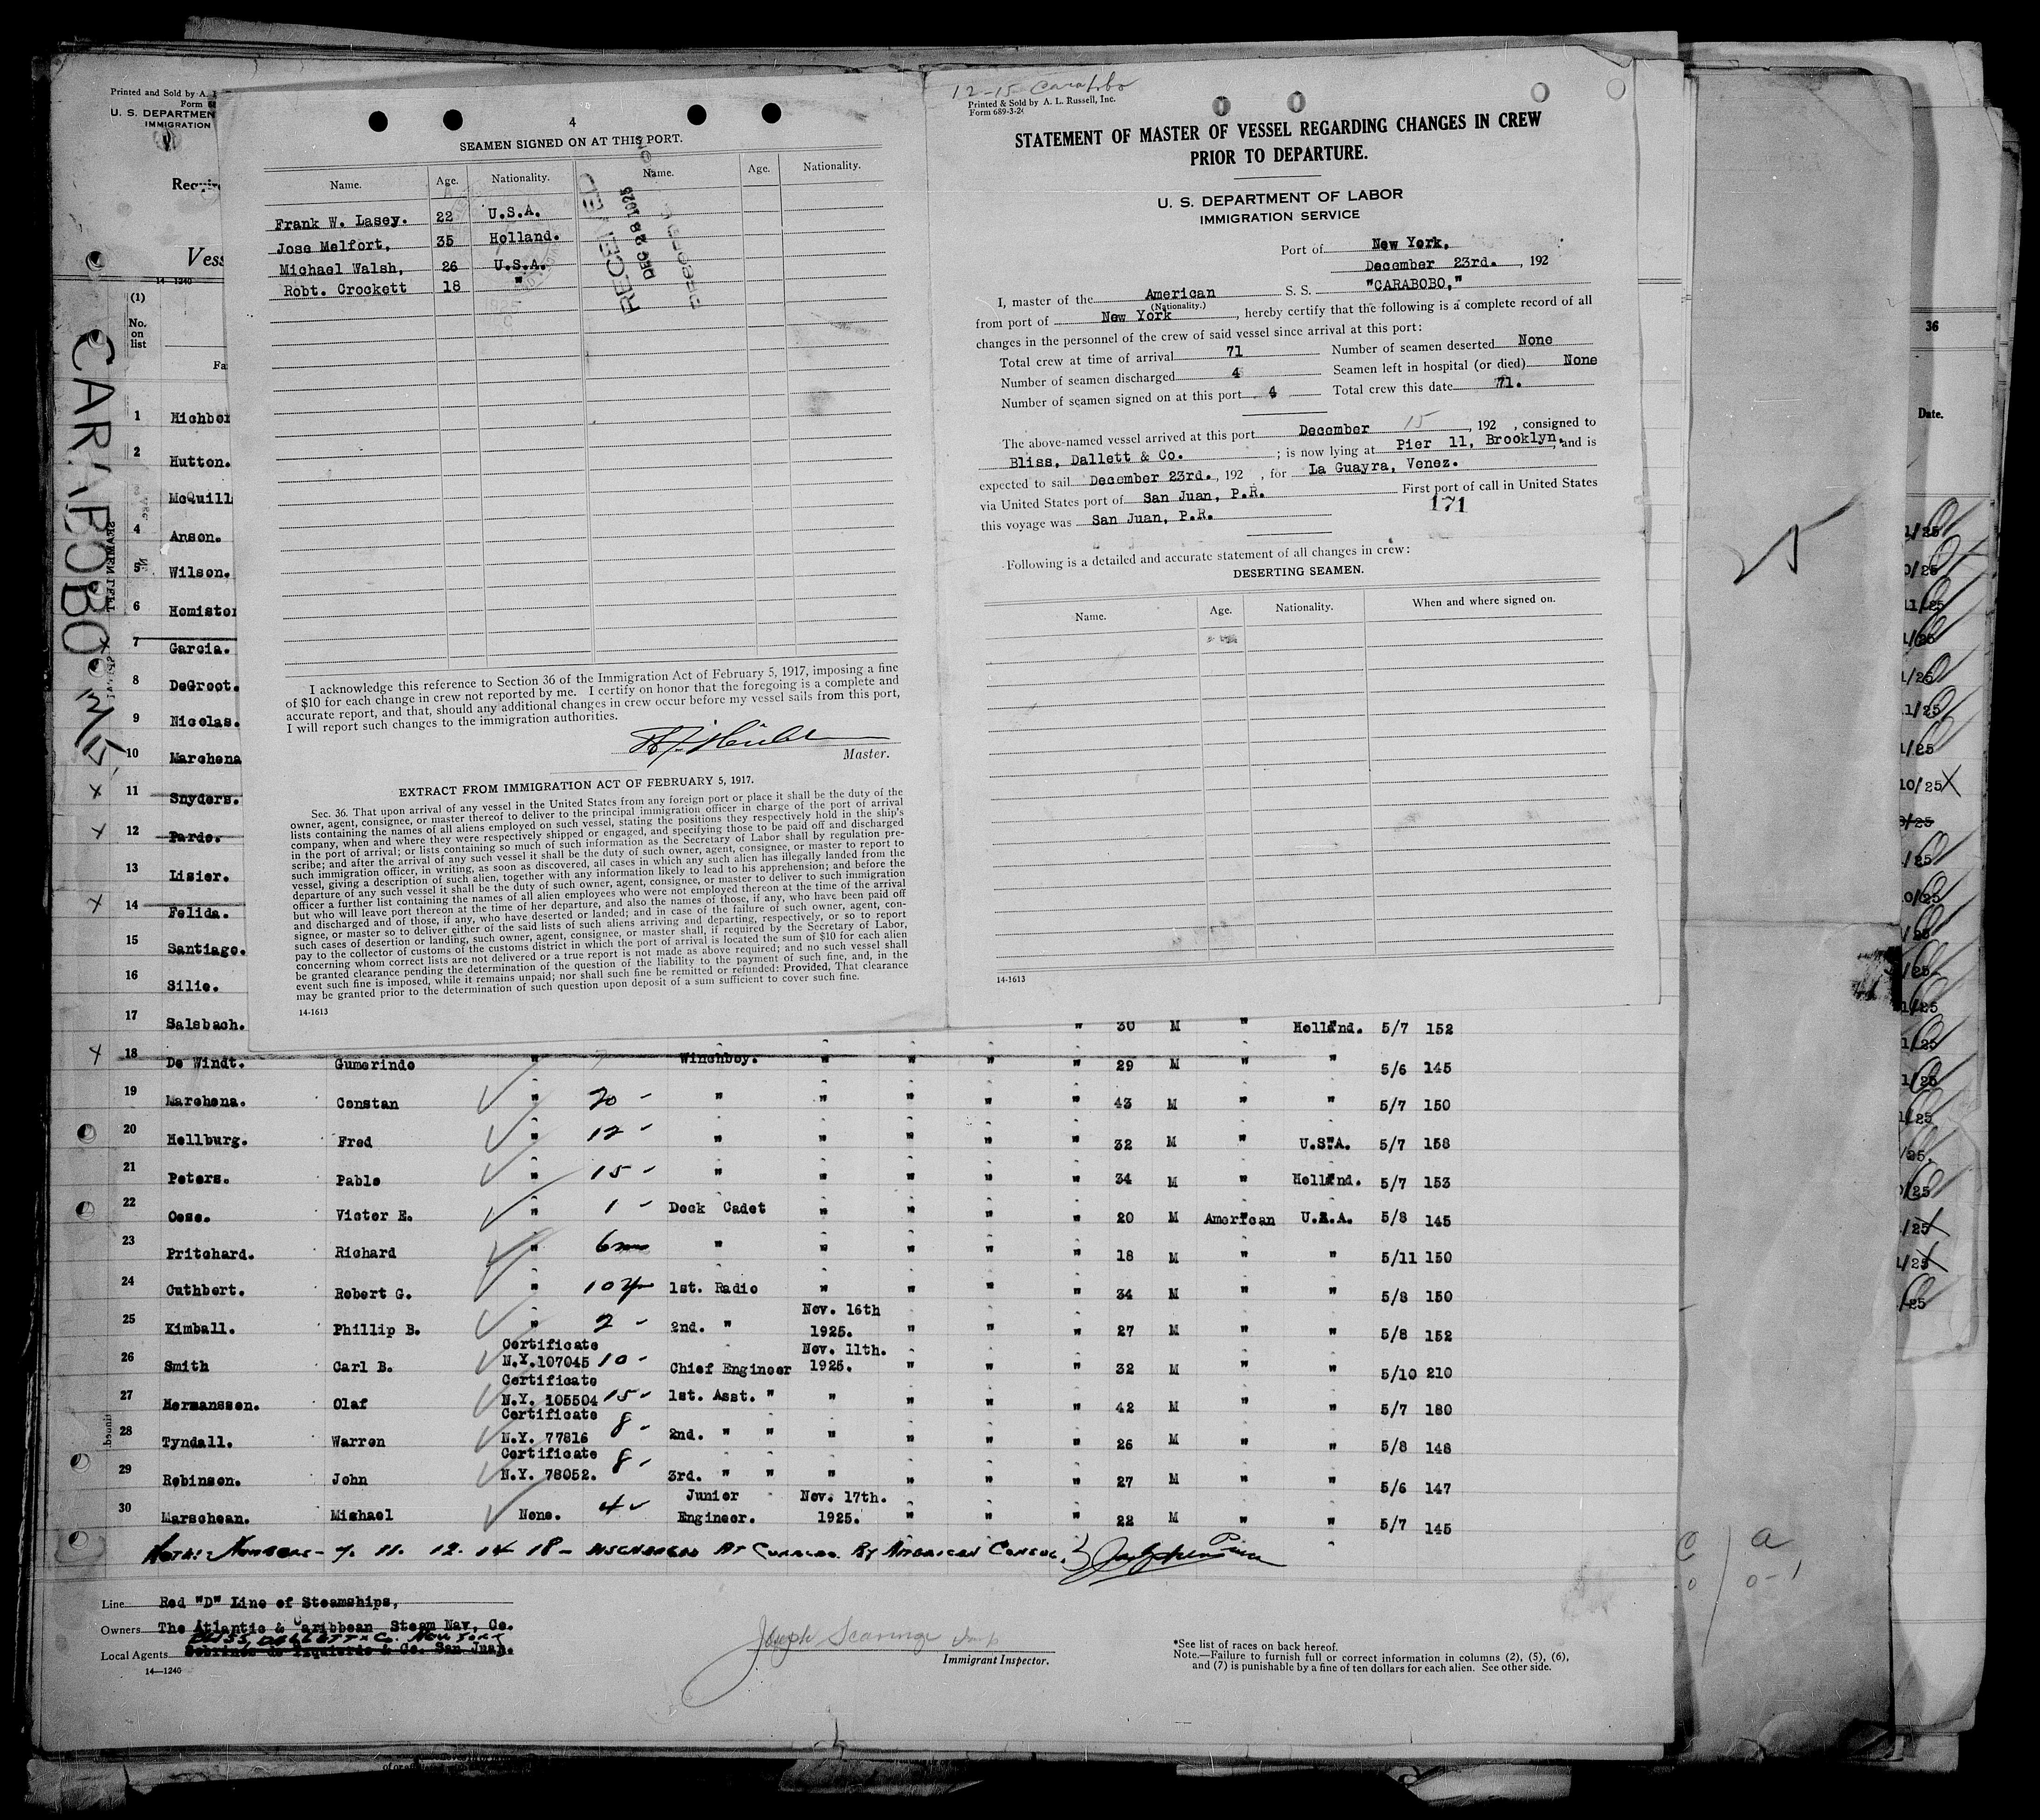 Printed and Sold by A.
Form 68
U. S. DEPARTMEN
IMMIGRATION
Requir
Vess
14—1240
(1)
No.
on
list
Fa
CARABOBO 12/15
4
SEAMEN SIGNED ON AT THIS PORT.
Name. Age. Nationality. Name. Age. Nationality.
Frank W. Lasey. 22 U.S.A.
Jose Melfort, 35 Holland.
Michael Walsh, 26 U.S.A.
Robt. Crockett 18 "
RECEIVED
DEC 28 1925
I acknowledge this reference to Section 36 of the Immigration Act of February 5, 1917, imposing a fine
of $10 for each change in crew not reported by me. I certify on honor that the foregoing is a complete and
accurate report, and that, should any additional changes in crew occur before my vessel sails from this port,
I will report such changes to the immigration authorities.
Master.
EXTRACT FROM IMMIGRATION ACT OF FEBRUARY 5, 1917.
Sec. 36. That upon arrival of any vessel in the United States from any foreign port or place it shall be the duty of the
owner, agent, consignee, or master thereof to deliver to the principal immigration officer in charge of the port of arrival
lists containing the names of all aliens employed on such vessel, stating the positions they respectively hold in the ship's
company, when and where they were respectively shipped or engaged, and specifying those to be paid off and discharged
in the port of arrival; or lists containing so much of such information as the Secretary of Labor shall by regulation pre-
scribe; and after the arrival of any such vessel it shall be the duty of such owner, agent, consignee, or master to report to
such immigration officer, in writing, as soon as discovered, all cases in which any such alien has illegally landed from the
vessel, giving a description of such alien, together with any information likely to lead to his apprehension; and before the
departure of any such vessel it shall be the duty of such owner, agent, consignee, or master to deliver to such immigration
officer a further list containing the names of all alien employees who were not employed thereon at the time of the arrival
but who will leave port thereon at the time of her departure, and also the names of those, if any, who have been paid off
and discharged and of those, if any, who have deserted or landed; and in case of the failure of such owner, agent, con-
signee, or master so to deliver either of the said lists of such aliens arriving and departing, respectively, or so to report
such cases of desertion or landing, such owner, agent, consignee, or master shall, if required by the Secretary of Labor,
pay to the collector of customs of the customs district in which the port of arrival is located the sum of $10 for each alien
concerning whom correct lists are not delivered or a true report is not made as above required; and no such vessel shall
be granted clearance pending the determination of the question of the liability to the payment of such fine, and, in the
event such fine is imposed, while it remains unpaid; nor shall such fine be remitted or refunded: Provided, That clearance
may be granted prior to the determination of such question upon deposit of a sum sufficient to cover such fine.
14-1613
12-15 Carabobo
Printed & Sold by A. L. Russell, Inc.
Form 689-3-24
STATEMENT OF MASTER OF VESSEL REGARDING CHANGES IN CREW
PRIOR TO DEPARTURE.
U. S. DEPARTMENT OF LABOR
IMMIGRATION SERVICE
Port of New York,
December 23rd. , 192
I, master of the American S. S. "CARABOBO,"
(Nationality.)
from port of New York , hereby certify that the following is a complete record of all
changes in the personnel of the crew of said vessel since arrival at this port:
Total crew at time of arrival 71 Number of seamen deserted None
Number of seamen discharged 4 Seamen left in hospital (or died) None
Number of seamen signed on at this port 4 Total crew this date 71.
The above-named vessel arrived at this port December 15 , 192 , consigned to
Bliss, Dallett & Co. ; is now lying at Pier 11, Brooklyn, and is
expected to sail December 23rd. , 192 , for La Guayra, Venez.
via United States port of San Juan, P.R. First port of call in United States
this voyage was San Juan, P.R. 171
Following is a detailed and accurate statement of all changes in crew:
DESERTING SEAMEN.
Name. Age. Nationality. When and where signed on.
14-1613
36
Date.
25
1 Hichbor
2 Hutton.
McQuill
4 Anson.
5 Wilson.
6 Homisto
7 Garcia.
8 DeGroot.
9 Nicolas.
10 Marchena
11 Snyders.
12 Pardo.
13 Lisier.
14 Felida.
15 Santiago.
16 Silie.
17 Salsbach. " 30 M " Holland. 5/7 152
18 De Windt. Gumerindo " Winchboy. " " " " 29 M " " 5/6 145
19 Marchena. Constan " 20 - " " " " " 43 M " " 5/7 150
20 Hellburg. Fred " 12 - " " " " " 32 M " U.S.A. 5/7 158
21 Peters. Pablo " 15 - " " " " " 34 M " Holland. 5/7 153
22 Oese. Victor E. " 1 - Deck Cadet " " " " 20 M American U.S.A. 5/8 145
23 Pritchard. Richard " 6 mos " " " " " 18 M " " 5/11 150
24 Cuthbert. Robert G. " 10 yr 1st. Radio " " " " 34 M " " 5/8 150
25 Kimball. Phillip B. " 2 - 2nd. " Nov. 16th 1925. " " " 27 M " " 5/8 152
26 Smith Carl B. Certificate N.Y.107045 10 - Chief Engineer Nov. 11th. 1925. " " " 32 M " " 5/10 210
27 Hermanssen. Olaf Certificate N.Y. 105504 15 - 1st. Asst. " " " " " 42 M " " 5/7 180
28 Tyndall. Warren Certificate N.Y. 77816 8 - 2nd. " " " " " " 26 M " " 5/8 148
29 Robinson. John Certificate N.Y. 78052. 8 - 3rd. " " " " " " 27 M " " 5/6 147
30 Marschean. Michael None. 4 Junior Engineer. Nov. 17th. 1925. " " " 22 M " " 5/7 145
Note: Numbers - 7. 11. 12. 14 18 - Discharged At Curacao. By American Consul.
Line Red "D" Line of Steamships,
Owners The Atlantic & Caribbean Steam Nav, Co.
Bliss, Dallett & Co. New York
Local Agents Sobrinos de Izquierdo & Co. San Juan.
14—1240
Immigrant Inspector.
*See list of races on back hereof.
Note.—Failure to furnish full or correct information in columns (2), (5), (6),
and (7) is punishable by a fine of ten dollars for each alien. See other side.